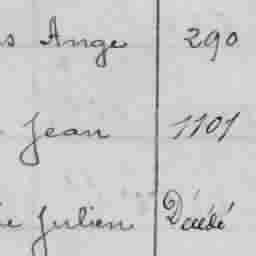 s Ange 290
Jean 1101
ie Julien Décédé